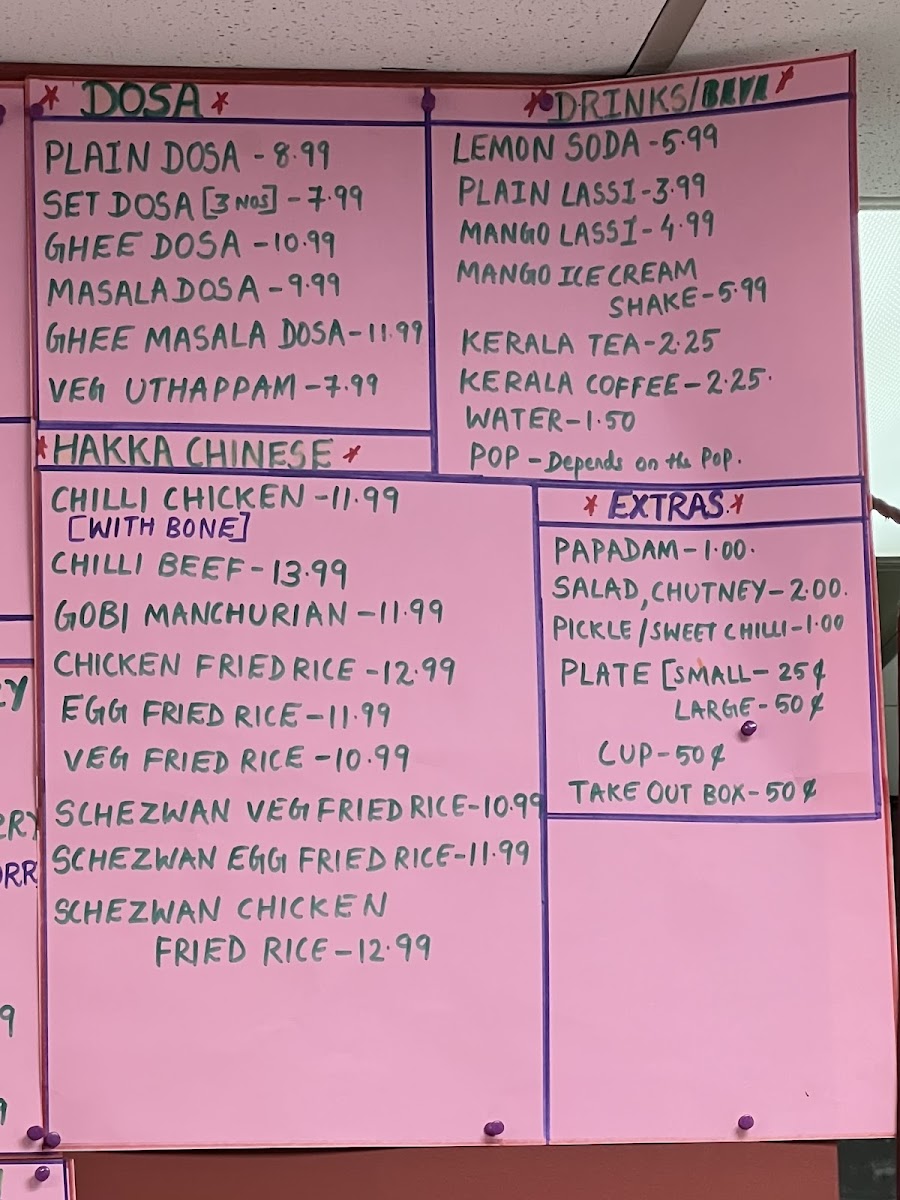 * DOSA *
PLAIN DOSA - 8.99
SET DOSA [3 NOS] - 7.99
GHEE DOSA - 10.99
MASALA DOSA - 9.99
GHEE MASALA DOSA - 11.99
VEG UTHAPPAM - 7.99
* HAKKA CHINESE *
CHILLI CHICKEN - 11.99
[WITH BONE]
CHILLI BEEF - 13.99
GOBI MANCHURIAN - 11.99
CHICKEN FRIED RICE - 12.99
EGG FRIED RICE - 11.99
VEG FRIED RICE - 10.99
SCHEZWAN VEG FRIED RICE - 10.99
SCHEZWAN EGG FRIED RICE - 11.99
SCHEZWAN CHICKEN
FRIED RICE - 12.99
* DRINKS/ *
LEMON SODA - 5.99
PLAIN LASSI - 3.99
MANGO LASSI - 4.99
MANGO ICE CREAM
SHAKE - 5.99
KERALA TEA - 2.25
KERALA COFFEE - 2.25.
WATER - 1.50
POP - Depends on the Pop.
* EXTRAS. *
PAPADAM - 1.00.
SALAD, CHUTNEY - 2.00.
PICKLE / SWEET CHILLI - 1.00
PLATE [SMALL - 25¢
LARGE - 50¢
CUP - 50¢
TAKE OUT BOX - 50¢